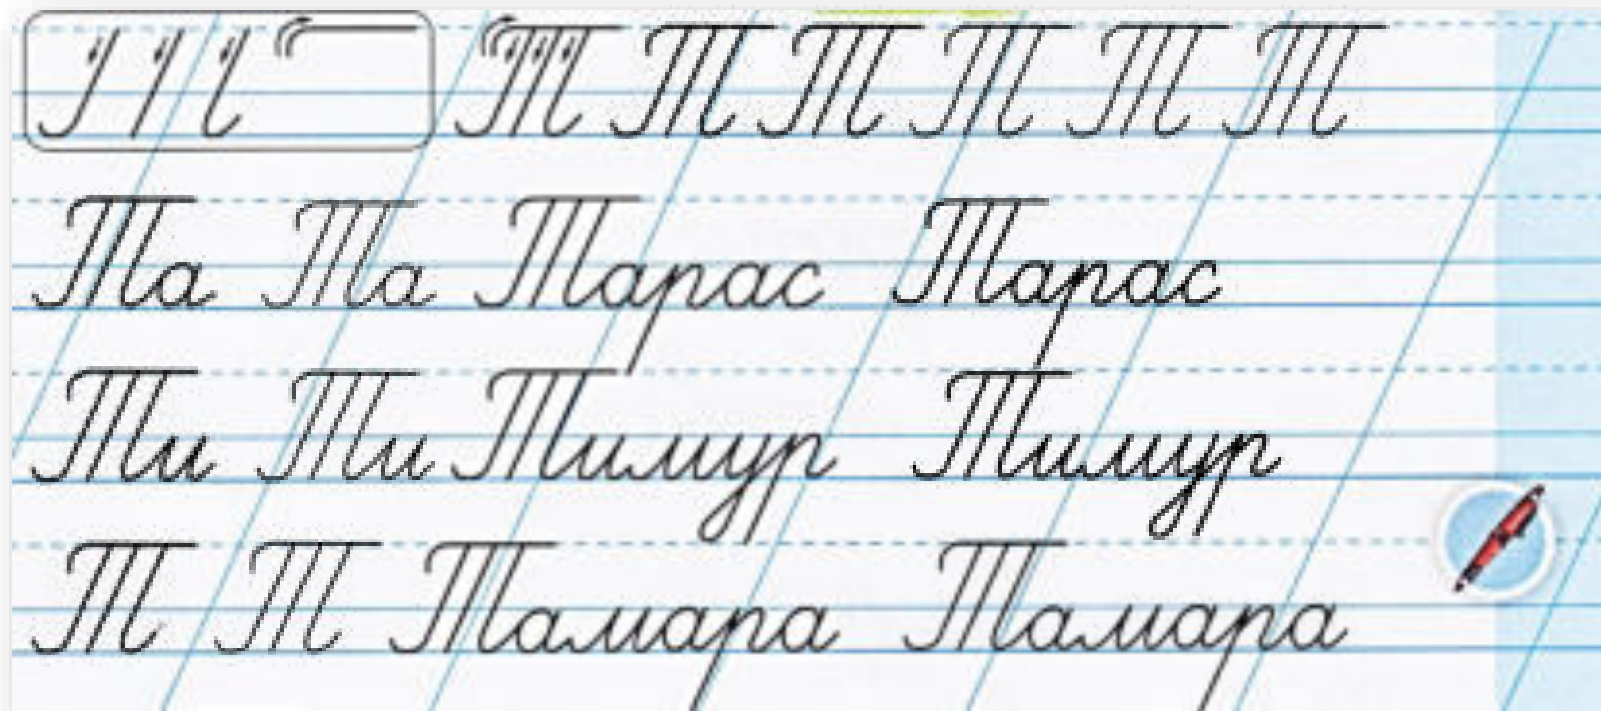 Т Т Т Т Т Т
Та Та Тарас Тарас
Ти Ти Тимур Тимур
Т Т Тамара Тамара